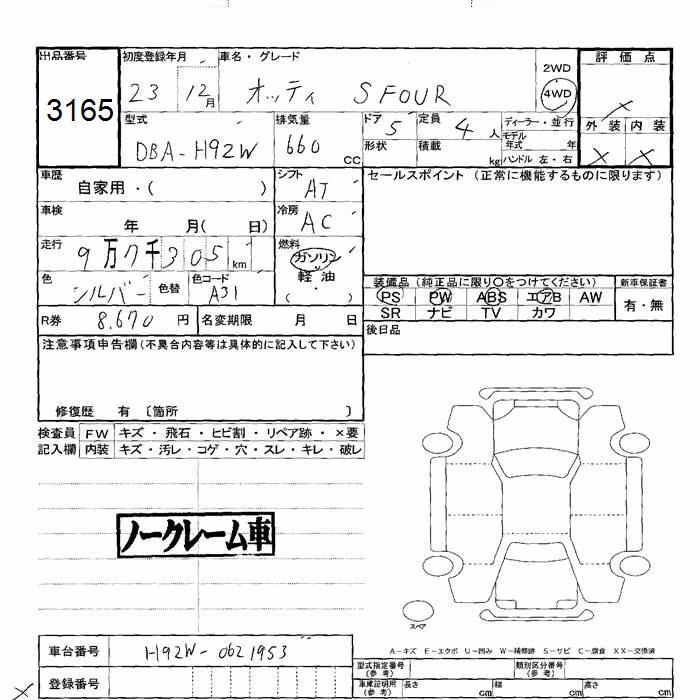 出品番号 初度登録年月 車名・グレード 2WD 評価点
3165 23 12月 オッティ S FOUR 4WD ×
型式 排気量 ドア 5 定員 4人 ディーラー・並行 外装 内装
DBA-H92W 660 cc 形状 積載 kg モデル年式 年 ハンドル 左・右 × ×
車歴 自家用・( ) シフト AT セールスポイント (正常に機能するものに限ります)
車検 年 月( 日) 冷房 AC
走行 9万7千305km 燃料 ガソリン 軽・油 ( )
色 シルバー 色替 色コード A31 装備品 (純正品に限り○をつけてください) 新車保証書
PS PW ABS エアB AW 有・無
R券 8,670円 名変期限 月 日 SR ナビ TV カワ
注意事項申告欄(不具合内容等は具体的に記入して下さい) 後日品
修復歴 有 〔箇所 〕
検査員 FW キズ・飛石・ヒビ割・リペア跡・×要
記入欄 内装 キズ・汚レ・コゲ・穴・スレ・キレ・破レ
ノークレーム車
スペア
A−キズ E−エクボ U−凹み W−補修跡 S−サビ C−腐食 XX−交換済
車台番号 H92W-0621953 型式指定番号(参考) 類別区分番号(参考)
登録番号 車庫証明用(参考) 長さ cm 幅 cm 高さ cm
×